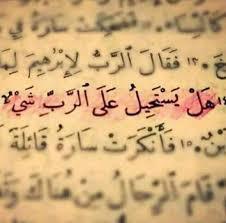 كَالنِّسَاءِ. فَضَحِكَتْ سَارَةُ فِي
١٣ فَقَالَ ٱلرَّبُّ لِإِبْرٰهِيمَ
١٤ هَلْ يَسْتَحِيلُ عَلَى ٱلرَّبِّ شَيْءٌ
١٥ فَأَنْكَرَتْ سَارَةُ قَائِلَةً
قَامَ ٱلرِّجَالُ مِنْ هُنَاكَ